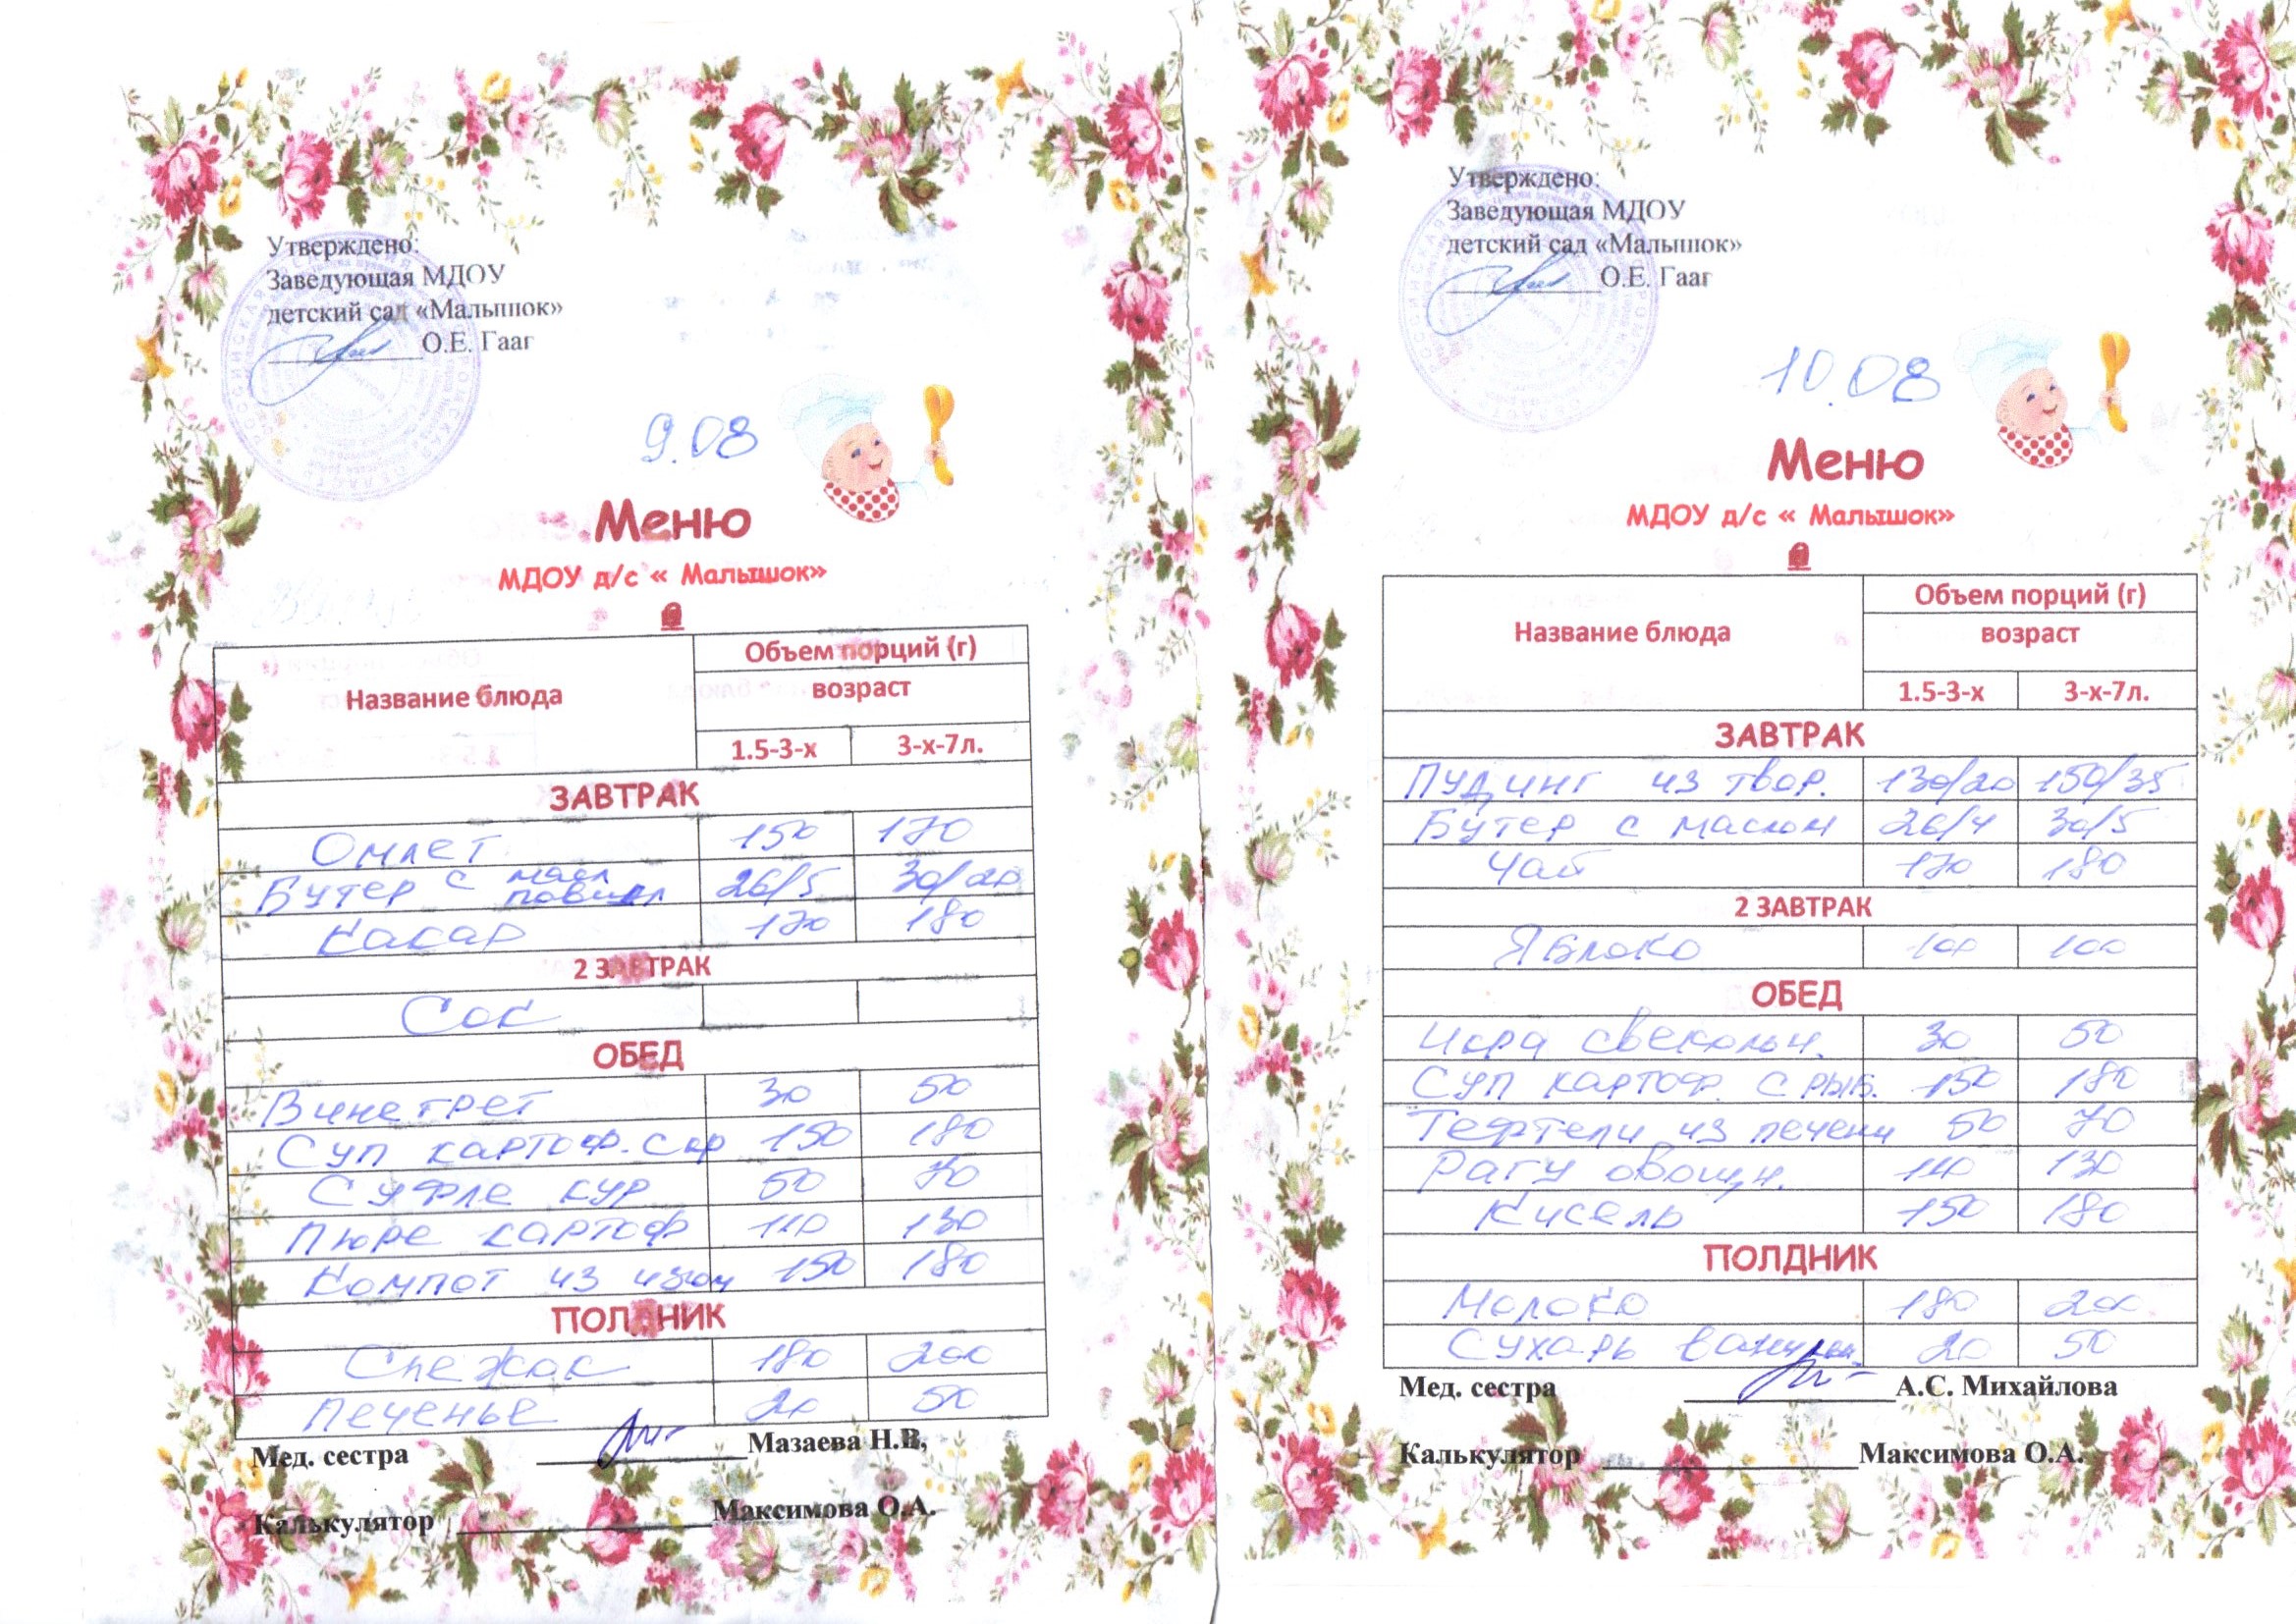 Утверждено:
Заведующая МДОУ
детский сад «Малышок»
О.Е. Гааг
9.08
Меню
МДОУ д/с « Малышок»
Название блюда
Объем порций (г)
возраст
1.5-3-х 3-х-7л.
ЗАВТРАК
Омлет 150 170
Бутер с масл повидл 26/5 30/20
Какао 170 180
2 ЗАВТРАК
Сок
ОБЕД
Винегрет 30 50
Суп картоф. 150 180
Суфле кур 50 70
Пюре картоф 110 130
Компот из изюм 150 180
ПОЛДНИК
Снежок 180 200
Печенье 20 50
Мед. сестра Мазаева Н.В,
Калькулятор Максимова О.А.
Утверждено:
Заведующая МДОУ
детский сад «Малышок»
О.Е. Гааг
10.08
Меню
МДОУ д/с « Малышок»
Название блюда
Объем порций (г)
возраст
1.5-3-х 3-х-7л.
ЗАВТРАК
Пудинг из твор. 130/20 150/35
Бутер с маслом 26/4 30/5
Чай 170 180
2 ЗАВТРАК
Яблоко 100 100
ОБЕД
Икра свекольн. 30 50
Суп картоф. с рыб. 150 180
Тефтели из печени 50 70
Рагу овощн. 110 130
Кисель 150 180
ПОЛДНИК
Молоко 180 200
Сухарь ванильн. 20 50
Мед. сестра А.С. Михайлова
Калькулятор Максимова О.А.